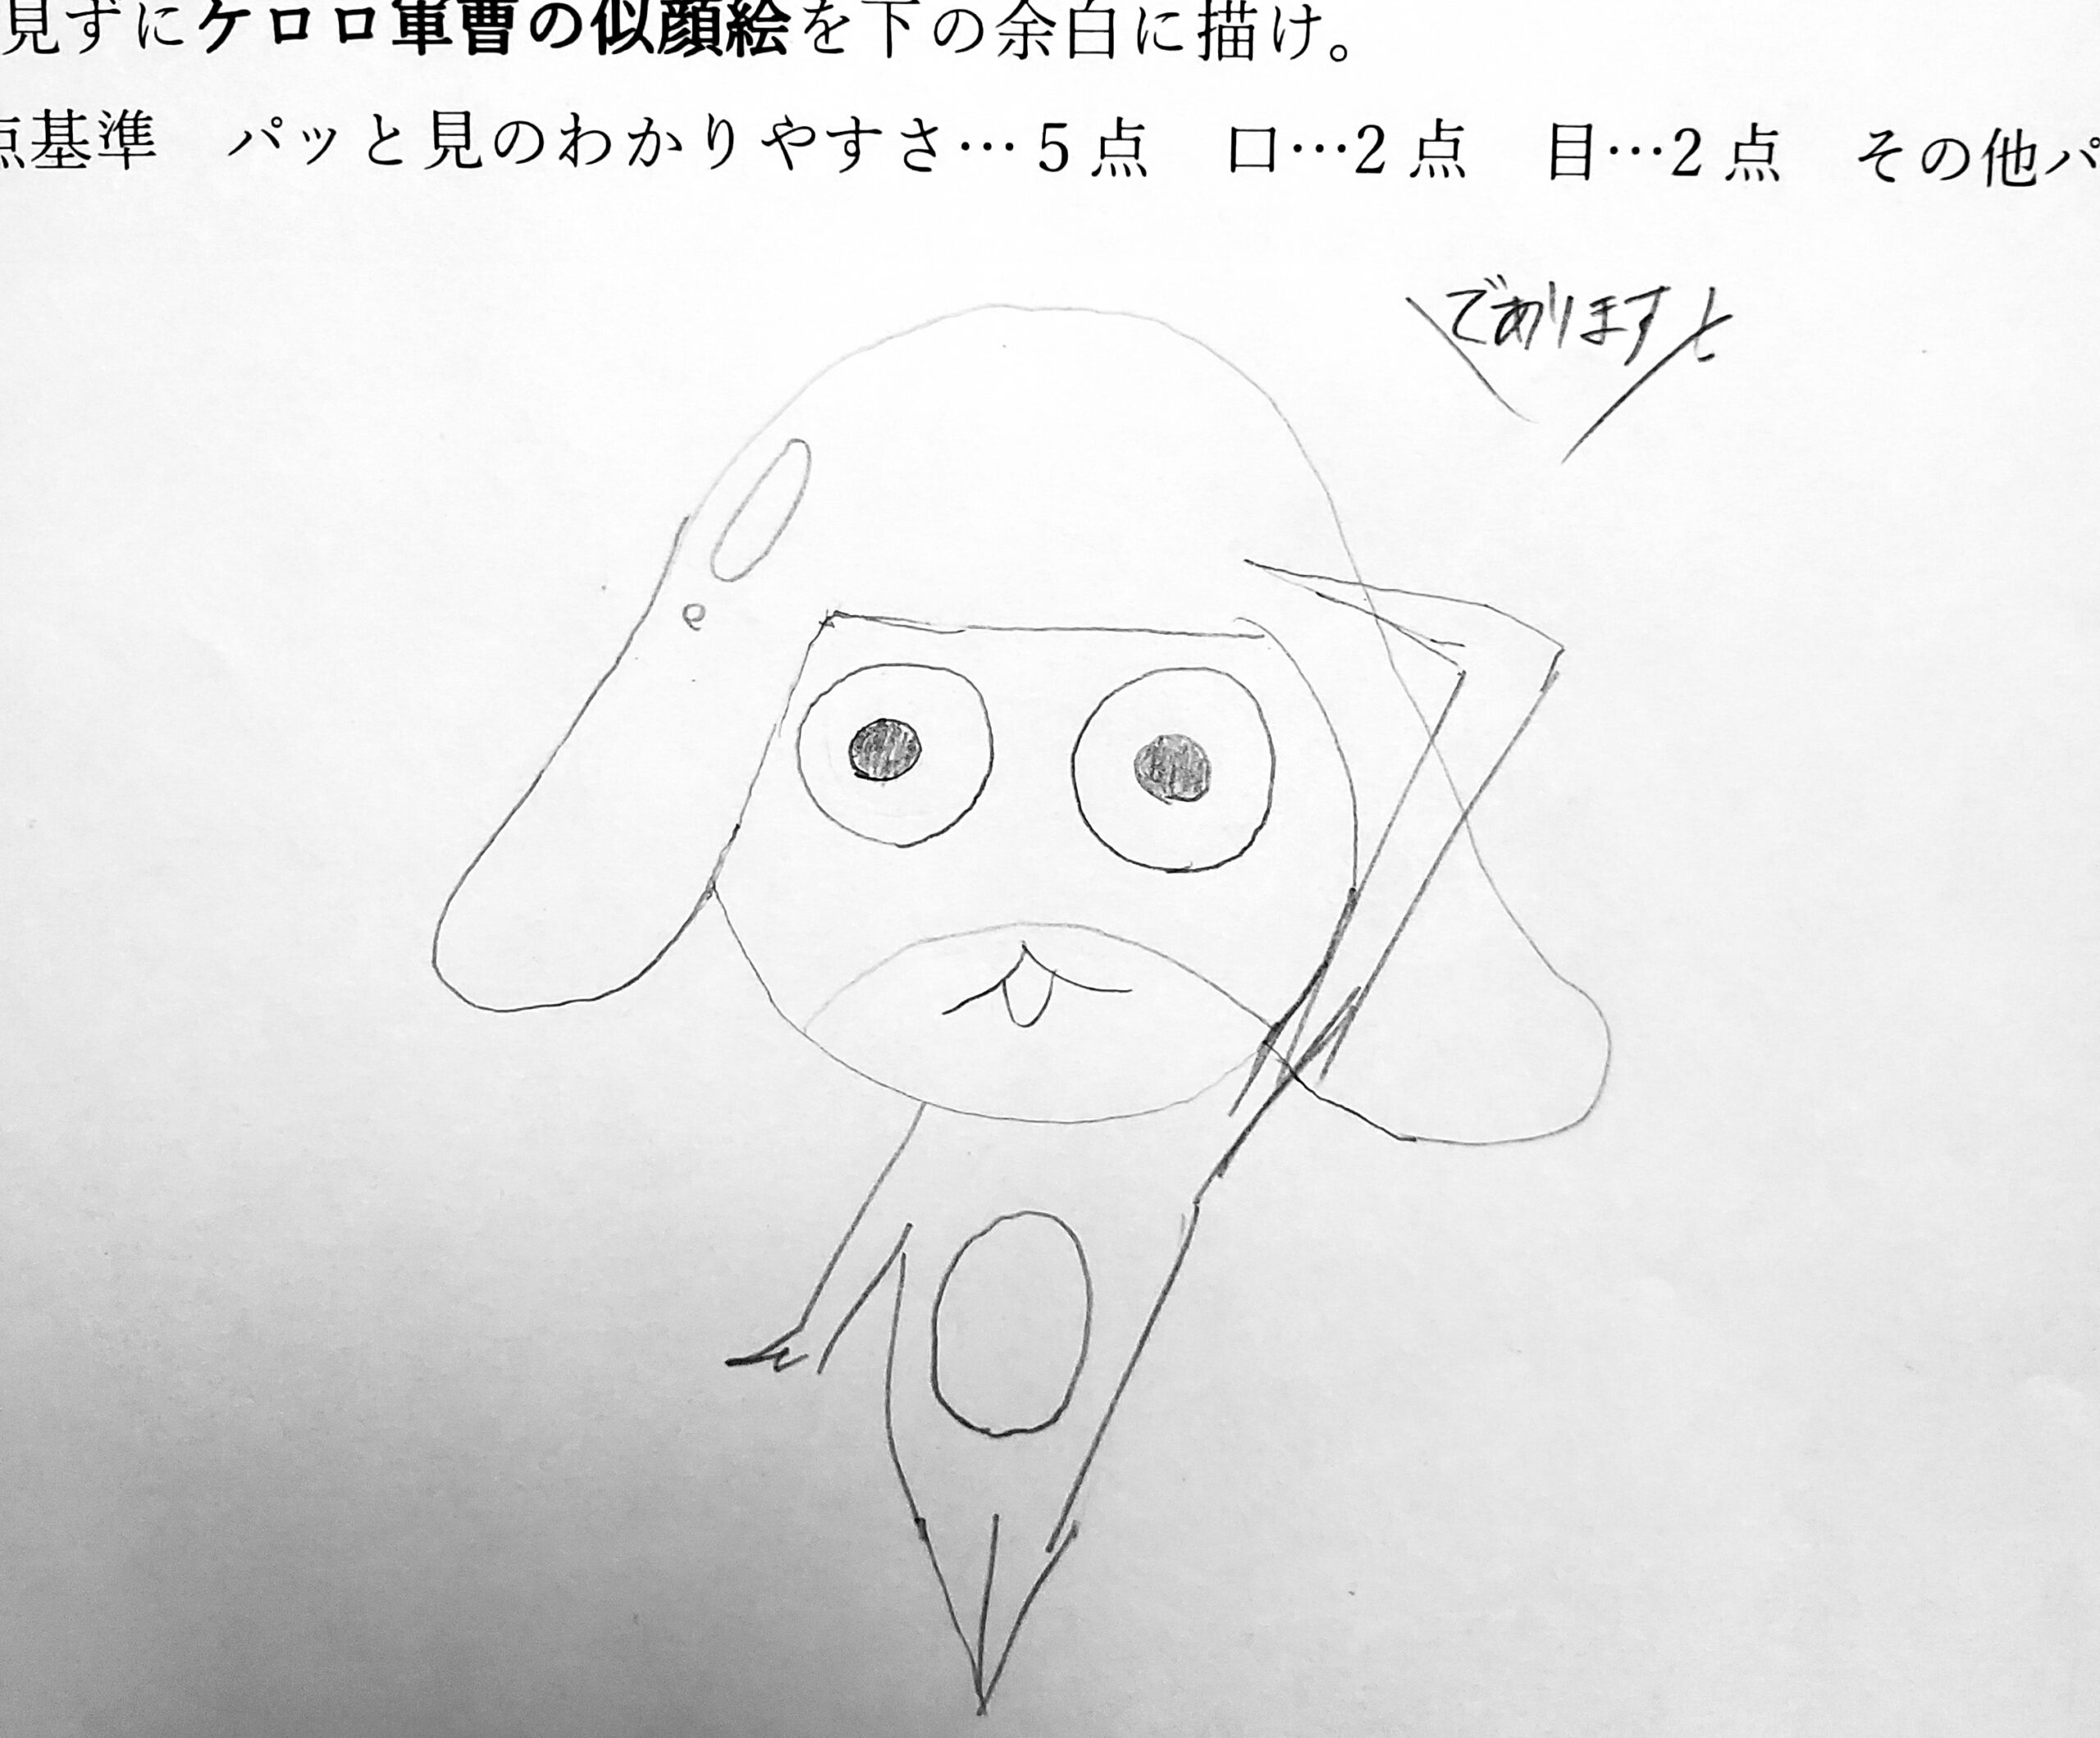 見ずにケロロ軍曹の似顔絵を下の余白に描け。
点基準 パッと見のわかりやすさ…5点 口…2点 目…2点 その他パ
であります